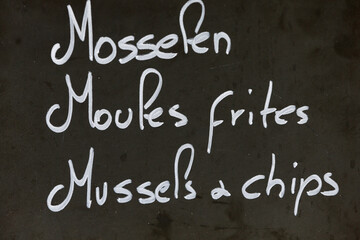 Mosselen
Moules frites
Mussels & chips